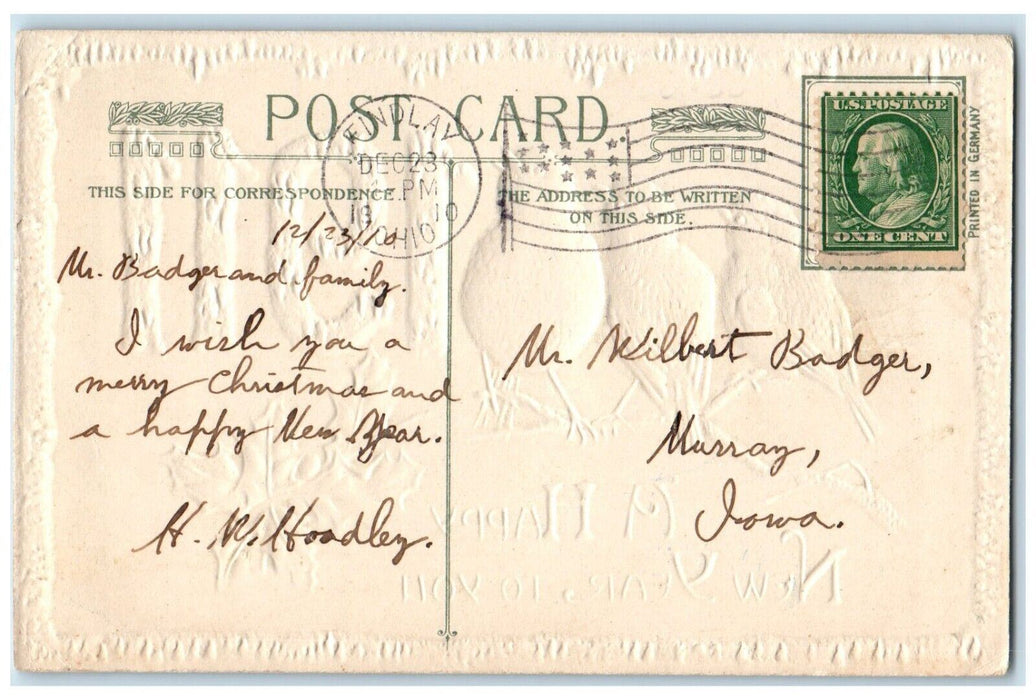 POST CARD.
THIS SIDE FOR CORRESPONDENCE.
THE ADDRESS TO BE WRITTEN
ON THIS SIDE.
FINDLAY
DEC 23
PM
19 10
OHIO
U.S. POSTAGE
ONE CENT
PRINTED IN GERMANY
12/23/10
Mr. Badger and family.
I wish you a
merry Christmas and
a happy New Year.
H. W. Hoadley.
Mr. Wilbert Badger,
Murray,
Iowa.
A HAPPY
NEW YEARS TO YOU